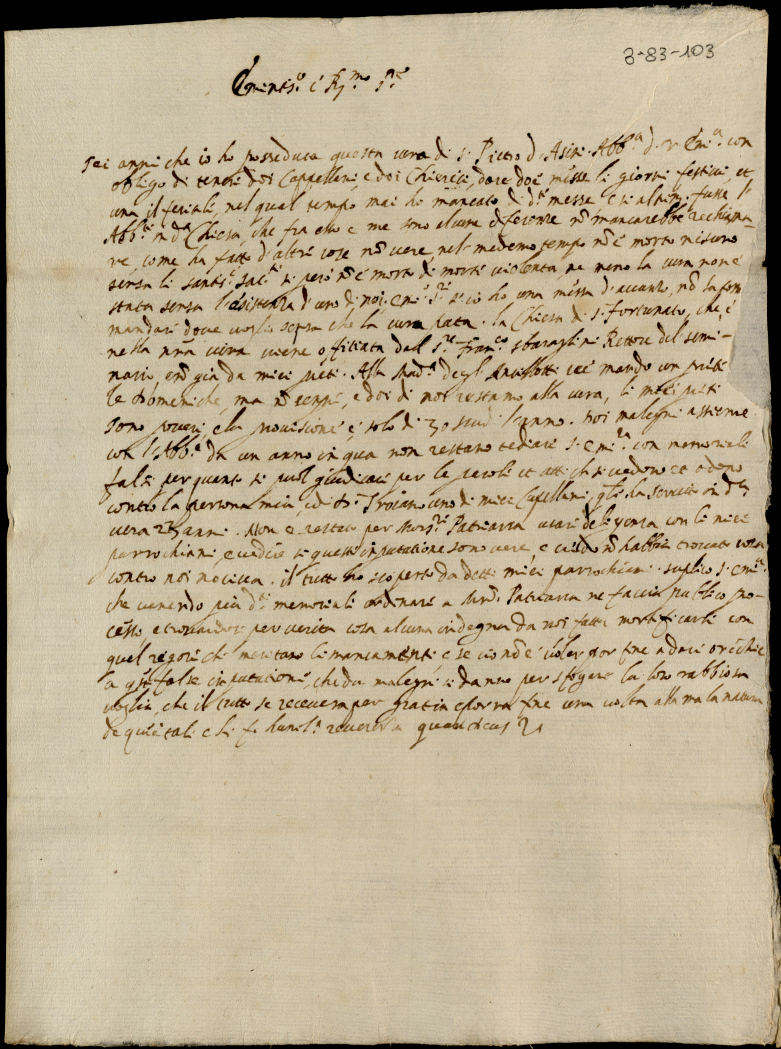 8-83-103
Eminmo e Rmo Sre
Sei anni che io ho posseduta questa cura di S. Pietro d. Asin. Abba d. V. Emza con
obligo di tener doi Cappellani e doi Chierici, dove doi messe li giorni festivi, et
una il feriali, nel qual tempo mai ho mancato di de messe e si altrim. fusse l'
Abbe in da Chiesa, che fra esso e me sono alcune diferenze no mancarebbe rechiama-
re, come ha fatto d'altre cose no vere, nel medemo tempo no è morto nisuno
senza li santi Sacti si però no è morto di morte violenta ne meno la cura non è
stata senza l'esistenza d'uno di noi, Emo Sre se io ho una messa d'avanzo, no la fo
mandare dove voglio sepra che la cura pata. la Chiesa di S. Fortunato, che è
nella mia cura viene offitiata dal Sre Franco Sbaraglini Rettore del semi-
nario, eno già da miei preti. Alla Mada degli ce mando un prete
le domeniche, ma no sempre, e doi di noi restamo alla cura, li miei preti
sono poveri, e la provisione è solo di 30 scudi l'anno. noi malegni assieme
con l'Abbe da un anno in qua non restano tediare S. Emza con memoriali
falsi per quanto si puol giudicare per le parole et atti che si vedono et odono
contro la persona mia, e di D. Troiano uno di miei Capellani, qle ha servito in da
cura 23 anni. Non è restato per Monsre Patriarca usar deligenza con li miei
parrochiani, e vedere se queste inputatione sono vere, e credo no habbia trovato cosa
contro noi nociva. il tutto ho scoperto da detti miei parrochiani. suplico S. Emza
che venendo più di memoriali ordinare a Monsre Patriarca ne faccia publico pro-
cesso, e trovandosi per verita cosa alcuna indegna da noi fatta mortificarli con
quel regore che meritano li mancamenti e se cio no è voler por fine a dare orecchie
a qste false inputationi, che da malegni si danno per sfogare la loro rabbiosa
voglia, che il tutto se receverà per gratia e porrà fine una volta alla mala natura
de questi tali e li fo humilma reverenza quam Deus